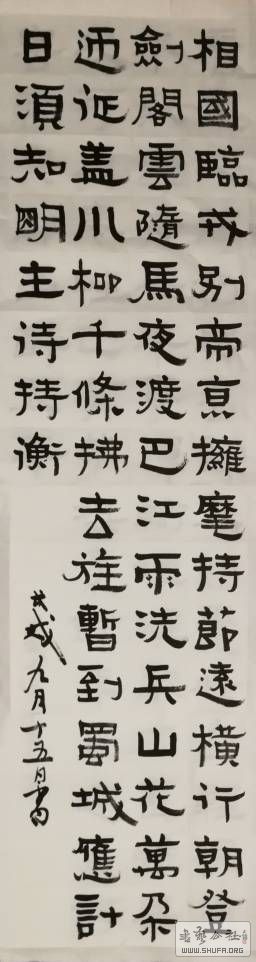 相國臨戎别帝京擁麾持節遠橫行朝登
劍閣雲隨馬夜渡巴江雨洗兵山花萬朵
迎征盖川柳千條拂去旌暫到蜀城應計
日須知明主待持衡
戊戌九月十五日書
書藝公社
WWW.SHUFA.ORG